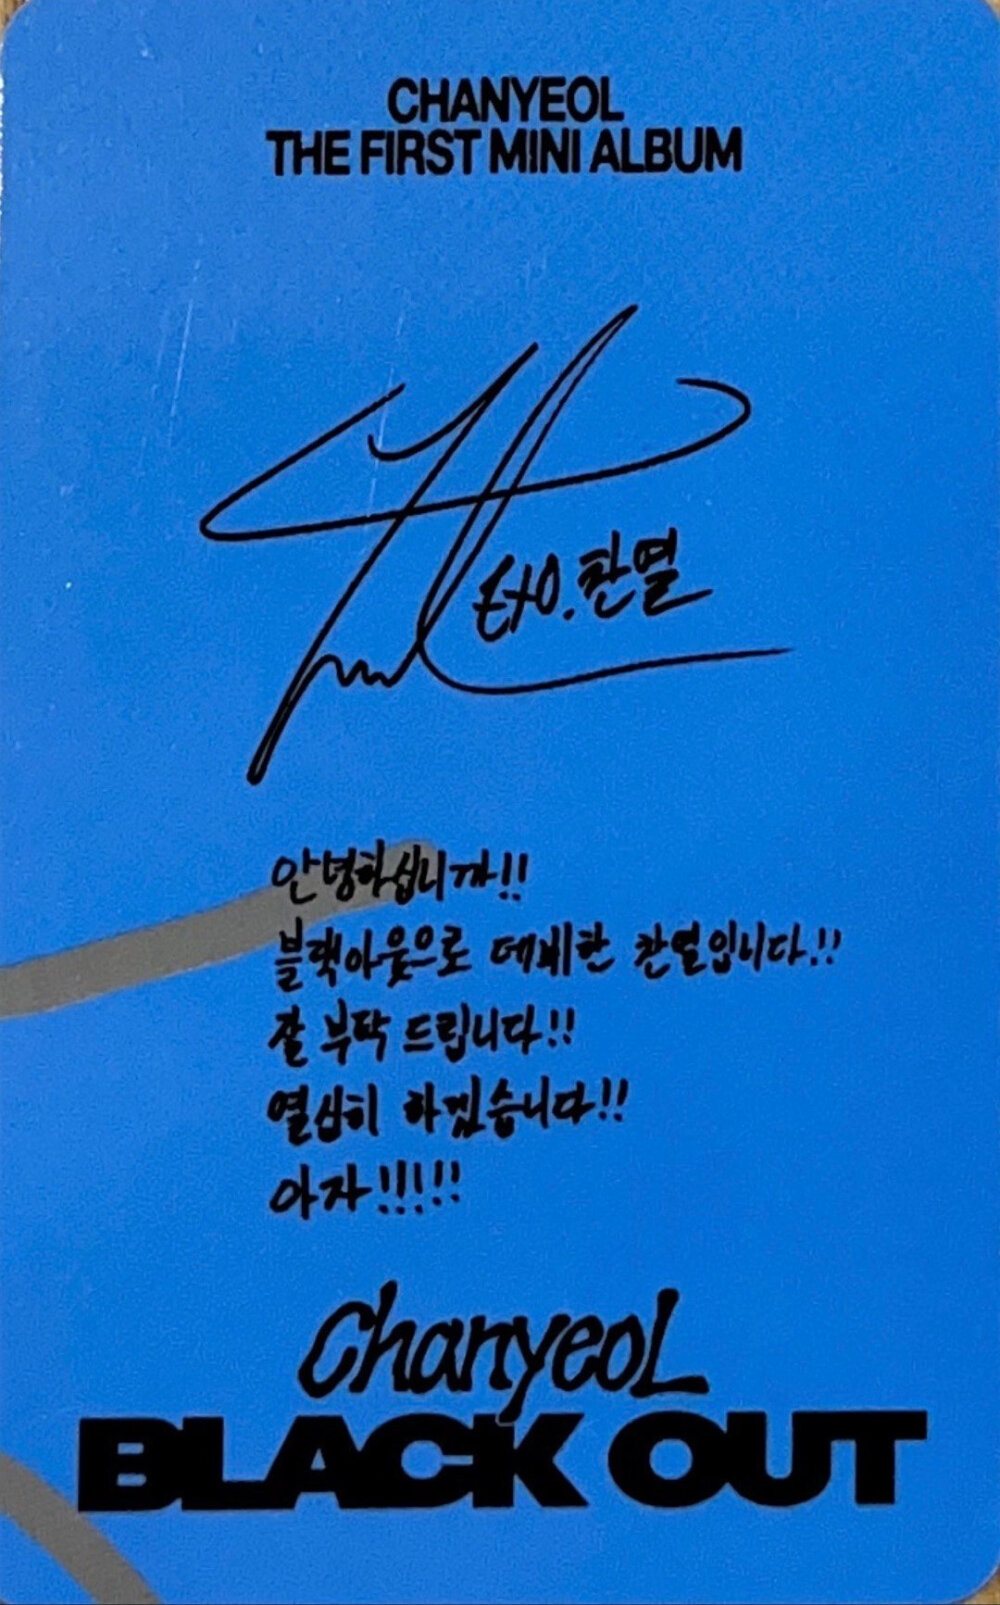 CHANYEOL
THE FIRST MINI ALBUM
EXO.찬열
안녕하십니까!!
블랙아웃으로 데뷔한 찬열입니다!!
잘 부탁 드립니다!!
열심히 하겠습니다!!
아자!!!!!
ChanyeoL
BLACK OUT